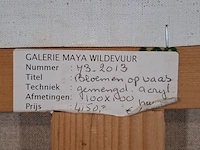 GALERIE MAYA WILDEVUUR
Nummer : 43-2013
Titel : Bloemen op vaas
Techniek : gemengd. acryl.
Afmetingen: 100x100
Prijs : 4150,=